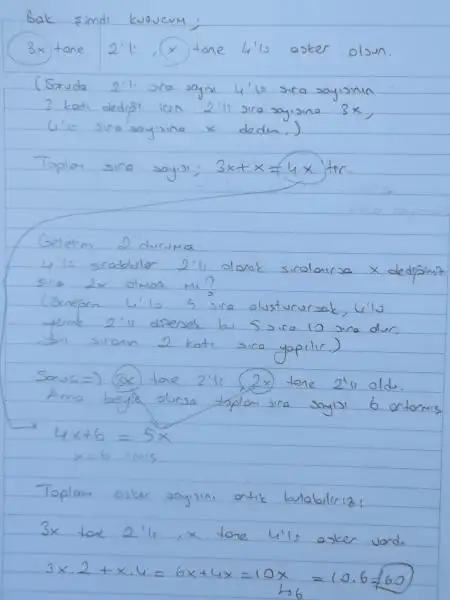 Bak şimdi kuzucum;
3x tane 2'li, x tane 4'lü asker olsun.
(Soruda 2'li sıra sayısı 4'lü sıra sayısının
3 katı dediği için 2'li sıra sayısına 3x,
4'lü sıra sayısına x dedim.)
Toplam sıra sayısı; 3x+x=4x 'tir.
Gelelim 2. duruma
4'lü sıradakiler 2'li olarak sıralanırsa x dediğimiz
sıra 2x olmaz mı?
(Örneğin 4'lü 5 sıra oluşturursak, 4'lü
yerine 2'li dizersek bu 5 sıra 10 sıra olur.
sıranın 2 katı sıra yapılır.)
Sonuç => 3x tane 2'li 2x tane 2'li oldu.
Ama böyle olursa toplam sıra sayısı 6 artarmış
4x+6 = 5x
x=6 imiş
Toplam asker sayısını artık bulabiliriz;
3x tane 2'li, x tane 4'lü asker vardı
3x.2 + x.4 = 6x+4x = 10x = 10.6=60
6